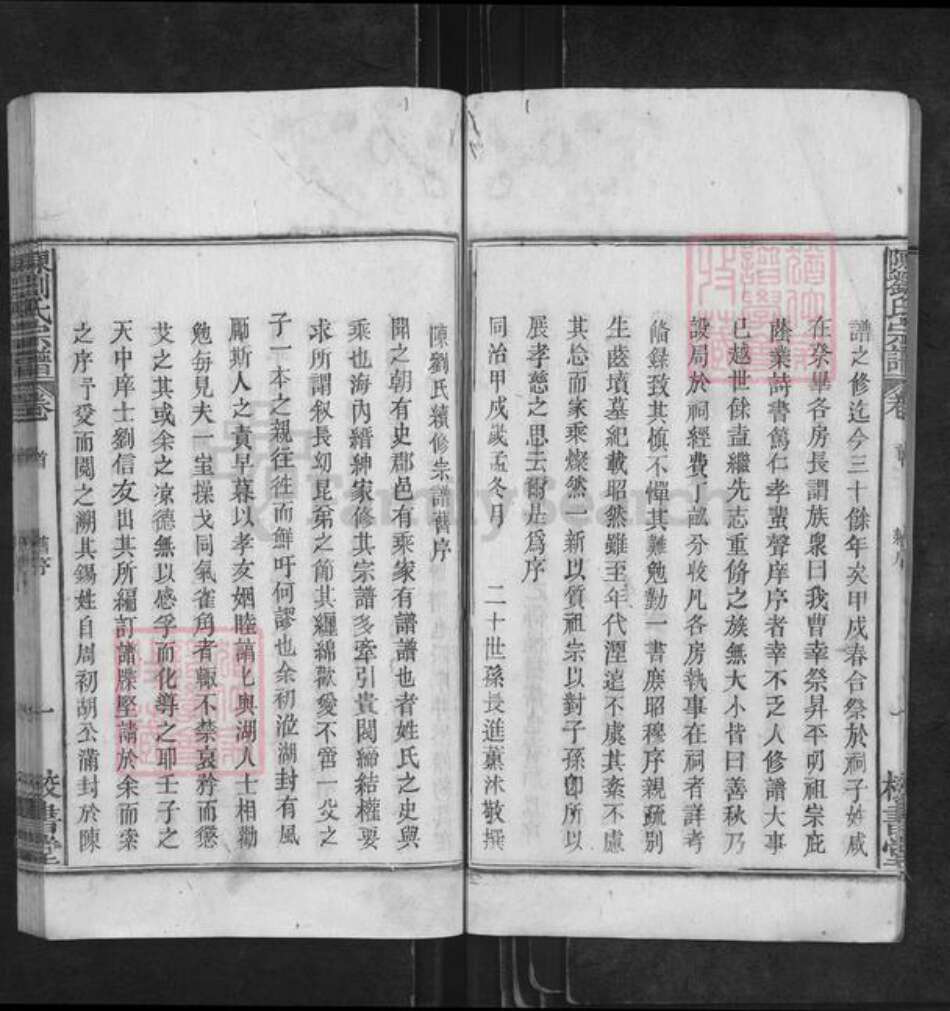 譜之修迄今三十餘年矣甲戌春合祭於祠子姓咸
在祭畢各房長謂族衆曰我曹幸際昇平叨祖宗庇
蔭業詩書篤仁孝蜚聲庠序者幸不乏人修譜大事
已越世餘盍繼先志重脩之族無大小皆曰善秋乃
設局於祠經費丁誠分收凡各房執事在祠者詳考
備錄致其愼不憚其難勉勷一書庶昭穆序親疏別
生齒墳墓紀載昭然雖至年代湮遠不虞其紊不慮
其忘而家乘燦然一新以質祖宗以對子孫卽所以
展孝慈之思云爾是爲序
同治甲戌歲孟冬月 二十世孫長進薰沐敬撰
陳劉氏續修宗譜舊序
聞之朝有史郡邑有乘家有譜譜也者姓氏之史與
乘也海內縉紳家修其宗譜多牽引貴閥締結權要
求所謂叙長幼昆弟之簡其纏綿歡愛不啻一父之
子一本之親往往而鮮吁何謬也余初涖湖封有風
厲斯人之責早暮以孝友姻睦講化與湖人士相勸
勉每見夫一室操戈同氣雀角者輙不禁哀矜而懲
艾之其或余之凉德無以感孚而化導之耶壬子之
天中庠士劉信友出其所編訂譜牒堅請於余而索
之序予受而閱之溯其錫姓自周初胡公滿封於陳
陳劉氏宗譜
卷首
舊序
一
校書堂
陳劉氏宗譜
卷首
一
校書堂
FamilySearch